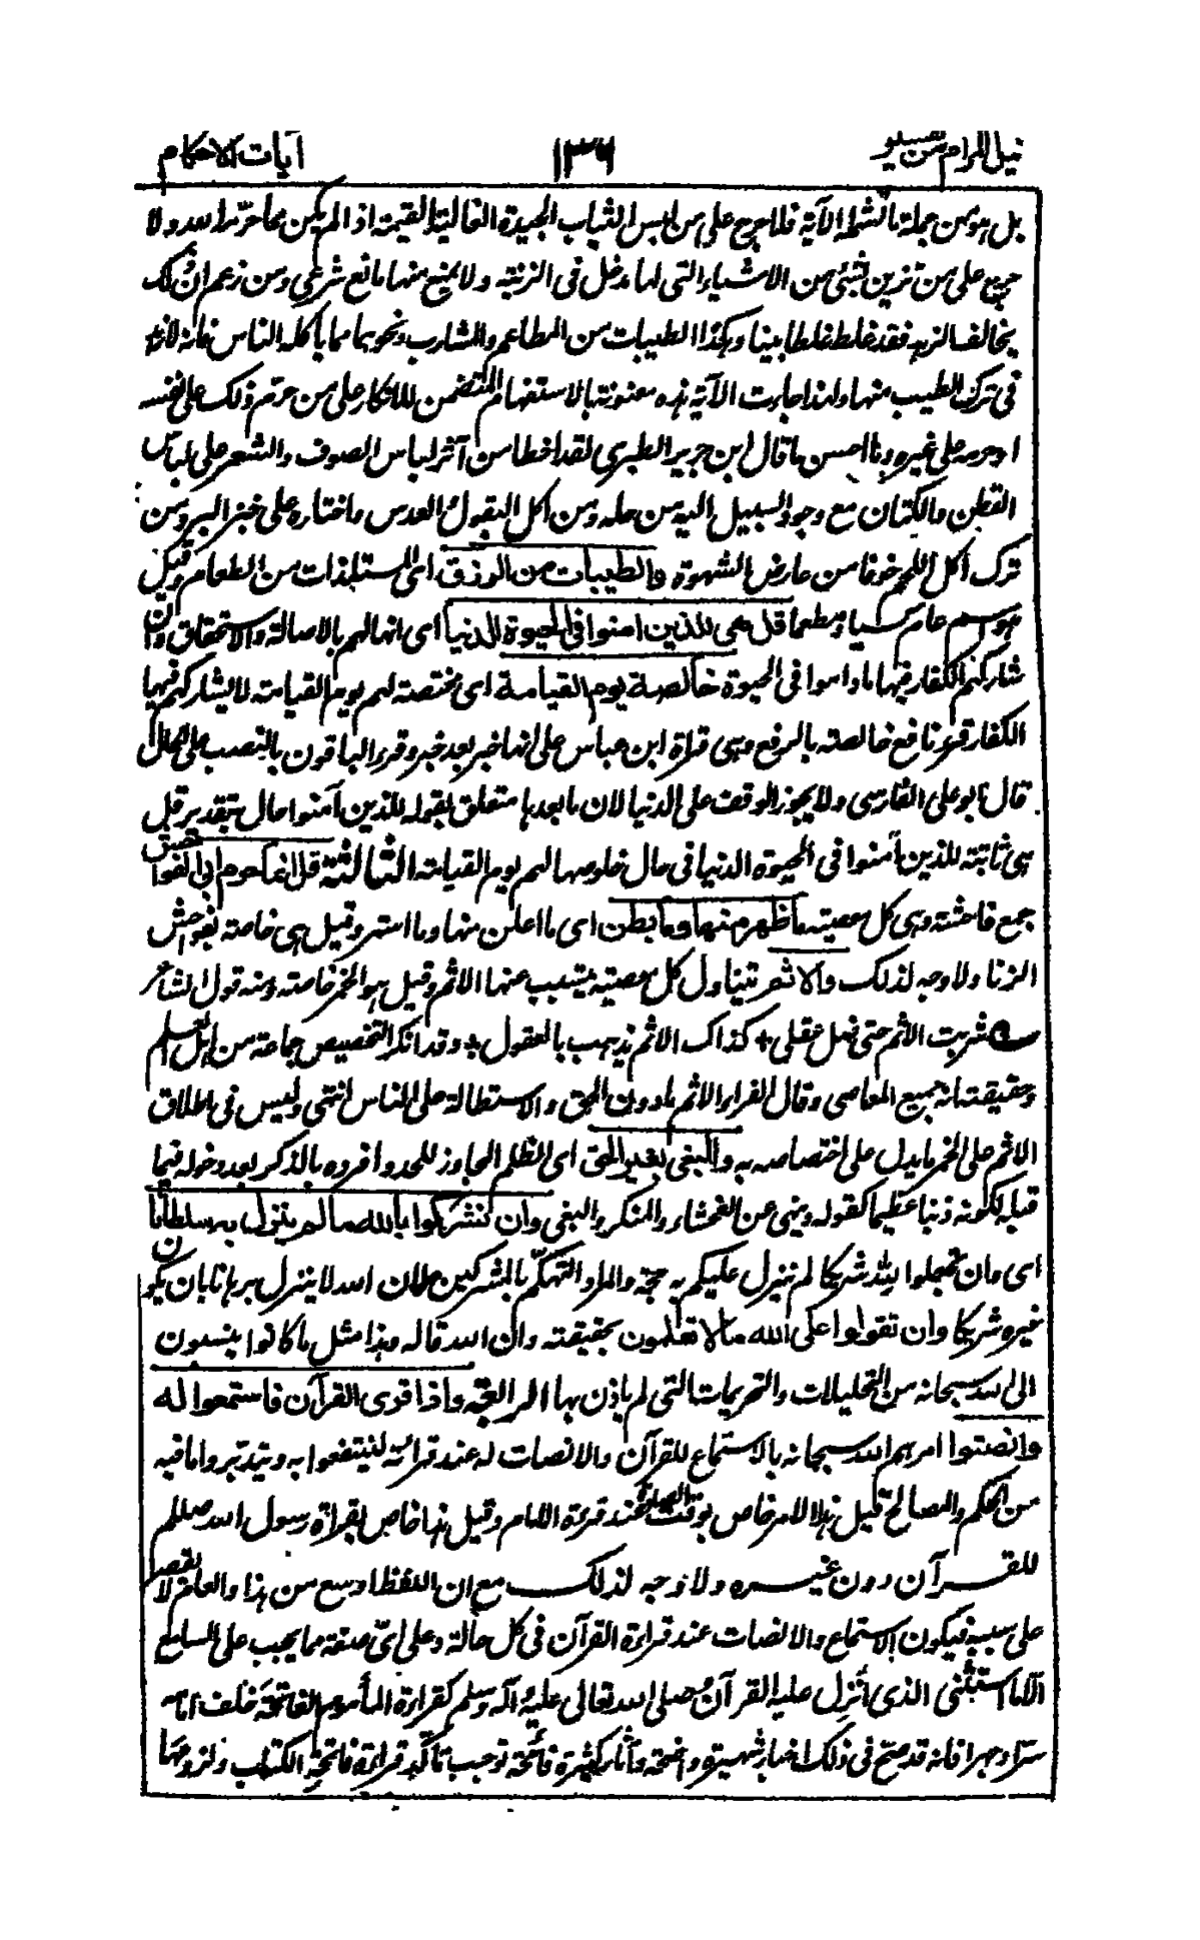 نيل المرام من تفسير ١٣٦ آيات الاحكام
بل هو من جملة ما تشمله الآية فلا حرج على من لبس الثياب الجيدة الغالية القيمة اذا لم يكن مما حرّمه الله ولا
حرج على من تزين بشئ من الاشياء التى لها مدخل فى الزينة ولا يمنع منها مانع شرعي ومن زعم ان ذلك
يخالف الزهد فقد غلط غلطا بينا وهكذا الطيبات من المطاعم والمشارب ونحوهما مما يأكله الناس فانه لا زهد
فى ترك الطيب منها ولهذا جاءت الآية هذه معنونة بالاستفهام المتضمن للانكار على من حرّم ذلك على نفسه
او حرمه على غيره وما احسن ما قال ابن جرير الطبرى لقد اخطا من آثر لباس الصوف والشعر على لباس
القطن والكتان مع وجود السبيل اليه من حله ومن اكل البقول والعدس واختاره على خبز البر ومن
ترك اكل اللحم خوفا من عارض الشهوة والطيبات من الرزق اى المستلذات من الطعام وقيل
هو اسم عام كسبا ومطعما قل هى للذين امنوا فى الحيوة الدنيا اى انها لهم بالاصالة والاستحقاق وان
شاركهم الكفار فيها ما داموا فى الحيوة خالصة يوم القيامة اى مختصة لهم يوم القيامة لا يشاركهم فيها
الكفار قرء نافع خالصة بالرفع وهى قراة ابن عباس على انها خبر بعد خبر وقرء الباقون بالنصب على الحال
قال ابو على الفارسى ولا يجوز الوقف على الدنيا لان ما بعدها متعلق بقوله للذين آمنوا حال بتقدير قل
هى ثابتة للذين آمنوا فى الحيوة الدنيا فى حال خلوصها لهم يوم القيامة الثالثة قل انما حرم ربى الفواحش
جمع فاحشة وهى كل معصية ما ظهر منها وما بطن اى ما اعلن منها وما استر وقيل هى خاصة بفواحش
الزنا ولا وجه لذلك والاثم يتناول كل معصية يتسبب عنها الاثم وقيل هو الخمر خاصة ومنه قول الشاعر
شربت الاثم حتى ضل عقلى + كذاك الاثم يذهب بالعقول + وقد انكر التخصيص جماعة من اهل العلم
وحقيقته انه جميع المعاصى وقال الفراء الاثم ما دون الحق والاستطالة على الناس انتهى وليس فى اطلاق
الاثم على الخمر ما يدل على اختصاصه به والبغى بغير الحق اى الظلم المجاوز للحد وافرده بالذكر بعد دخوله فيما
قبله لكونه ذنبا عظيما كقوله وينهى عن الفحشاء والمنكر والبغى وان تشركوا بالله ما لم ينزل به سلطانا
اى وان تجعلوا لله شريكا لم ينزل عليكم به حجة والمراد التهكّم بالمشركين لان الله لا ينزل برهانا بان يكون
غيره شريكا وان تقولوا على الله ما لا تعلمون بحقيقته وان الله قاله وهذا مثل ما كانوا ينسبون
الى الله سبحانه من التحليلات والتحريمات التى لم ياذن بها الرابعة واذا قرئ القرآن فاستمعوا له
وانصتوا امرهم الله سبحانه بالاستماع للقرآن والانصات له عند قرائته لينتفعوا به ويتدبروا ما فيه
من الحكم والمصالح قيل هذا الامر خاص بوقت الصلوة عند قرءة الامام وقيل هذا خاص بقراة رسول الله صلعم
للقرآن دون غيره ولا وجه لذلك مع ان اللفظ اوسع من هذا والعام لا يقصر
على سببه فيكون الاستماع والانصات عند قراءة القرآن فى كل حالة وعلى اىّ صفة مما يجب على السامع
الا ما استثنى الذى أنزل عليه القرآن صلى الله تعالى عليه وآله وسلم كقراءة المأموم الفاتحة خلف امامه
سرّا وجهرا فانه قد صح فى ذلك اخبار شهيرة واضحة وآثار كثيرة توجب تأكد قراءة فاتحة الكتاب ولزومها